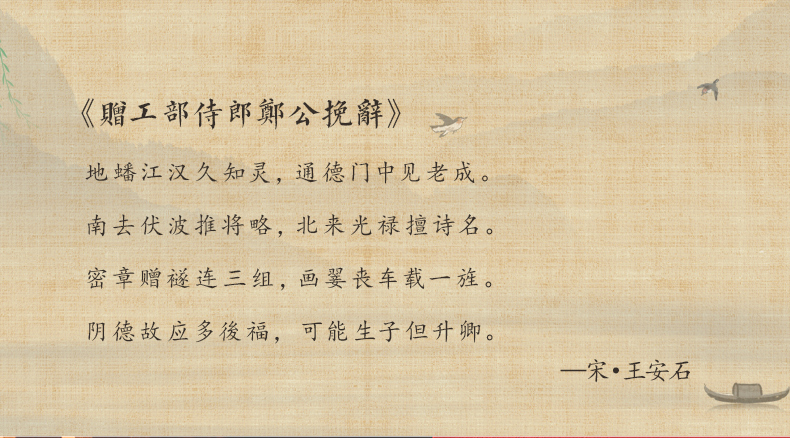 《贈工部侍郎鄭公挽辭》
地蟠江汉久知灵，通德门中见老成。
南去伏波推将略，北来光禄擅诗名。
密章赠襚连三组，画翣丧车载一旌。
阴德故应多後福，可能生子但升卿。
—宋•王安石